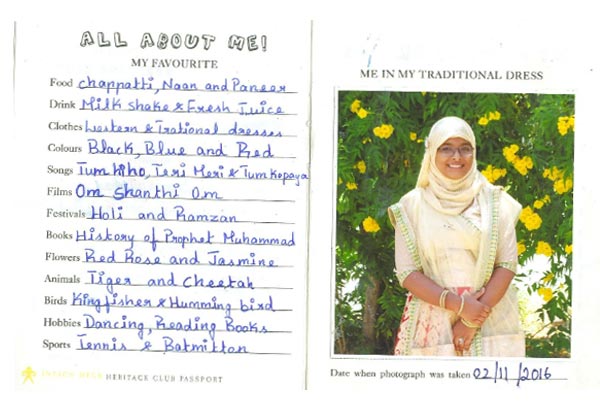 ALL ABOUT ME!
MY FAVOURITE
Food chappatti, Naan and Paneer
Drink Milk shake & Fresh Juice
Clothes Western & Trational dresses
Colours Black, Blue and Red
Songs Tum hi ho, Teri Meri & Tum Ko paya
Films Om Shanthi Om
Festivals Holi and Ramzan
Books History of Prophet Muhammad
Flowers Red Rose and Jasmine
Animals Tiger and Cheetah
Birds Kingfisher & Humming bird
Hobbies Dancing, Reading Books
Sports Tennis & Batmitton
HERITAGE CLUB PASSPORT
ME IN MY TRADITIONAL DRESS
Date when photograph was taken 02/11/2016